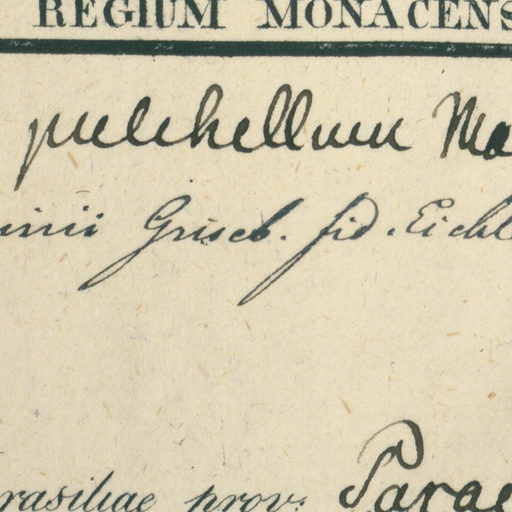 REGIUM MONACENS
pulchellum Ma
inii Griseb. fid. Eichl
rasiliae prov: Parae